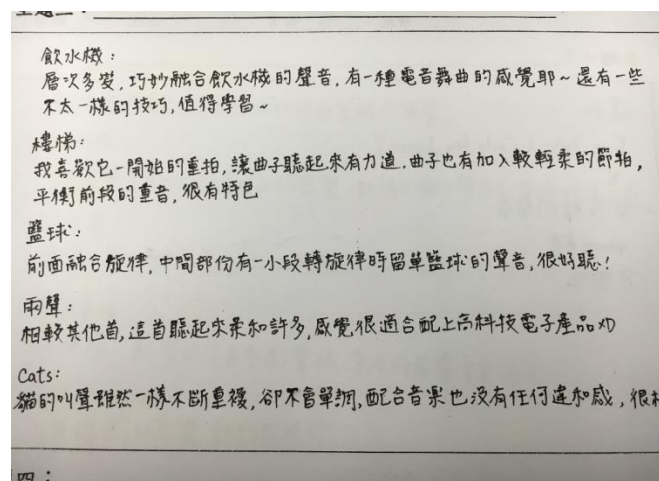 飲水機：
層次多變，巧妙融合飲水機的聲音，有一種電音舞曲的感覺耶～還有一些
不太一樣的技巧，值得學習～
樓梯：
我喜歡它一開始的重拍，讓曲子聽起來有力道，曲子也有加入較輕柔的節拍，
平衡前段的重音，很有特色
籃球：
前面融合旋律，中間部份有一小段轉旋律時留單籃球的聲音，很好聽！
雨聲：
相較其他首，這首聽起來柔和許多，感覺很適合配上高科技電子產品XD
Cats：
貓的叫聲雖然一樣不斷重複，卻不會單調，配合音樂也沒有任何違和感，很
四：